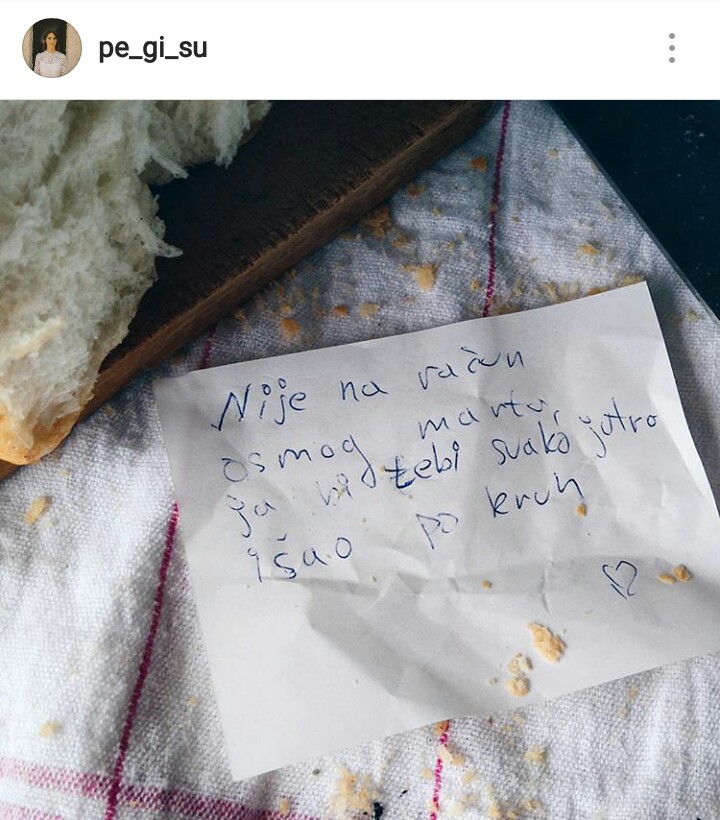 pe_gi_su
Nije na račun
osmog marta,
ja bi tebi svako jutro
išao po kruh